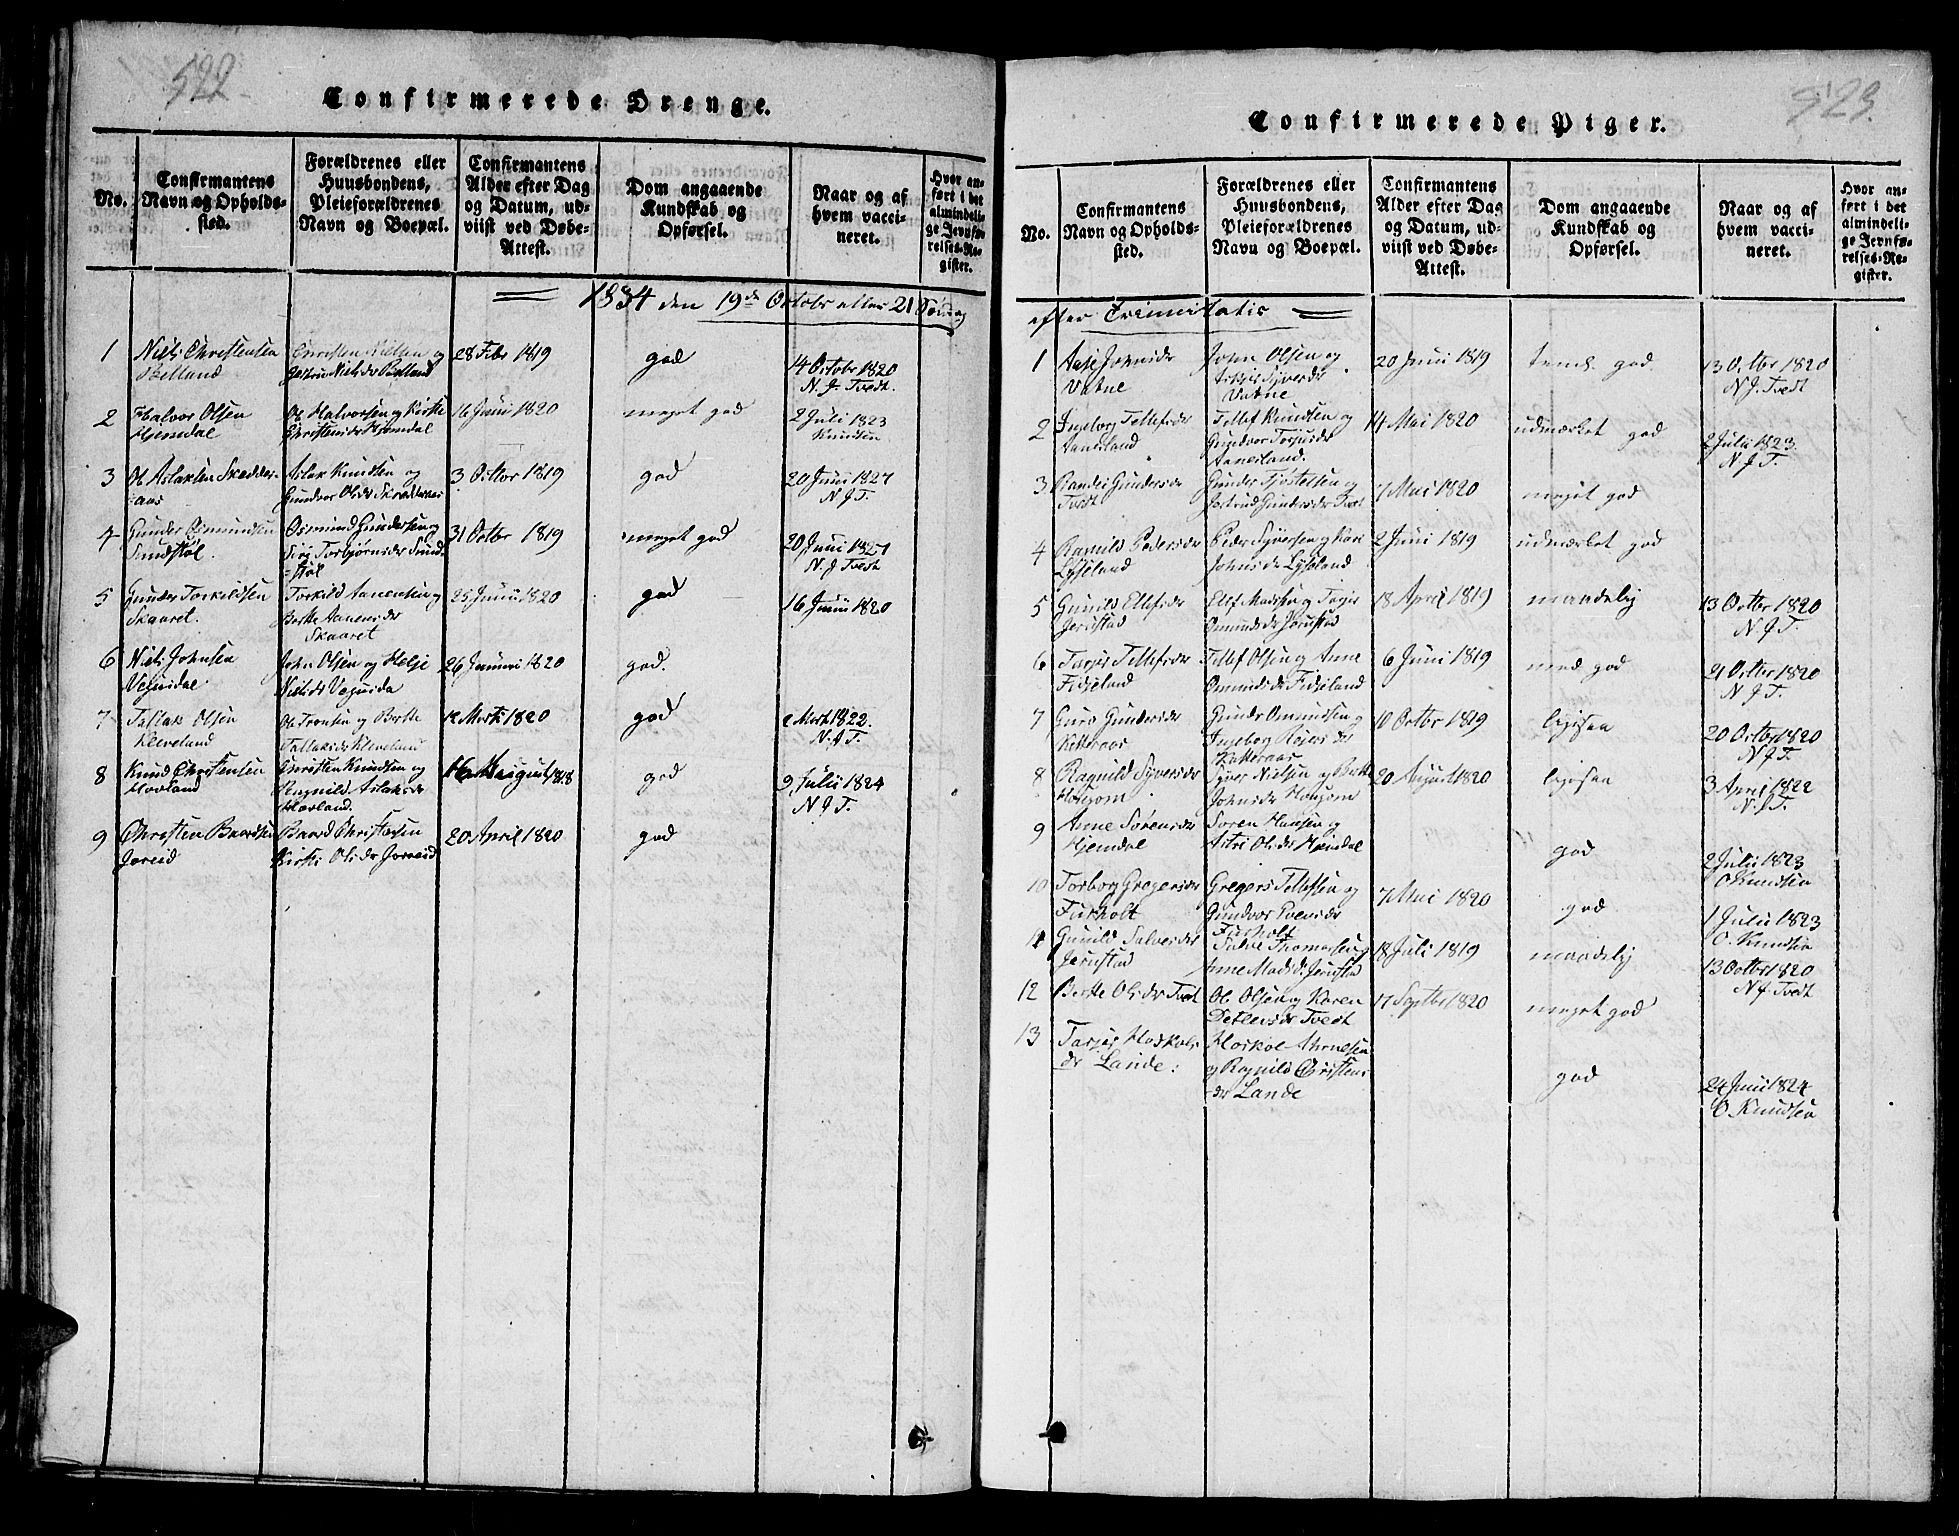 522
Confirmerede Drenge.
No.
Confirmantens
Navn og Opholds-
sted.
Forældrenes eller
Huusbondens,
Pleieforældrenes
Navn og Boepæl.
Confirmantens
Alder efter Dag
og Datum, ud-
viist ved Døbe-
Attest.
Dom angaaende
Kundskab og
Opførsel.
Naar og af
hvem vacci-
neret.
Hvor an-
ført i det
almindeli-
ge Jevnfø-
relses-Re-
gister.
1834 den 19de Octobr eller 21 Søndag
1 Niels Christensen
Christen Nielsen og
28 Febr 1819
god
14 Octobr 1820
N. J. Tvedt.
2 Halvor Olsen
Hjemdal
Ol Halvorsen og Kirste
Christensdr Hjemdal
16 Juni 1820
meget god
2 Juli 1823
Knudsen
3 Ol Aslaksen Skedder-
aas
Aslak Knudsen og
Gundvor Olsdr
3 Octbr 1819
god
20 Juni 1827
N J T.
4 Gunder Osmundsen
Sundstøl.
Osmund Gundersen og
Siri Torbjørnsdr Sund
støl
31 Octbr 1819
meget god
20 Juni 1827
N. J Tvedt
5 Gunder Torkildsen
Skaaret.
Torkild Aanensen og
Berte Aanensdr
Skaaret
25 Juni 1820
god
16 Juni 1820
6 Niels Johnsen
Vegusdal
John Olsen og Helje
Nielsdr Vegusda
26 Januari 1820
god.
7 Tallak Olsen
Kleveland
Ol Tronsen og Berte
Tallaksdr Kleveland
12 Marti 1820
god
2 Mart 1822.
N. J T.
8 Knud Christensen
Hovland
Christen Knudsen og
Aslaksdr
Hovland.
16 August 1818
god
9 Julii 1824
N J T.
9 Christen Baardsen
Joreid
Baard Christensen
Kirsti Olsdr Joreid
20 April 1820
god
523.
Confirmerede Piger.
No.
Confirmantens
Navn og Opholds-
sted.
Forældrenes eller
Huusbondens,
Pleieforældrenes
Navn og Boepæl.
Confirmantens
Alder efter Dag
og Datum, ud-
viist ved Døbe-
Attest.
Dom angaaende
Kundskab og
Opførsel.
Naar og af
hvem vacci-
neret.
Hvor an-
ført i det
almindeli-
ge Jevnfø-
relses-Re-
gister.
efter Trinitatis
1 Aase Johnsdr
Vatne
John Olsen og
Syversdr
Vatne
20 Juni 1819
god
13 Octbr 1820
N J. Tvedt
2 Ingeborg Tellefsdr
Aanesland
Tellef Knudsen og
Gundvor Torjusdr
Aanesland.
14 Mai 1820
udmærket god
2 Julii 1823.
N J T.
3 Randei Gundersdr
Tvedt
Gunder Tjøstelsen og
Jostrud Gundersdr Tvedt
7 Mai 1820
meget god
4 Ragnild Pedersdr
Lysland
Peder Syversen og Kari
Johnsdr Lysland
2 Juni 1819
udmærket god
5 Gunild Ellefsdr
Jerustad
Ellef Madsen og Torjer
Omundsdr Jerustad
18 April 1819
maadelig
13 Octbr 1820
N. J T.
6 Torjer Tellefsdr
Fidjeland
Tellef Olsen og Anne
Omundsdr Fidjeland
6 Juni 1819
med god
21 Octbr 1820
N J T.
7 Guro Gundersdr
Ketteraas
Gunder Omundsen og
Ingebor
Ketteraas
10 Octbr 1819
ligesaa
20 Octbr 1820
N J T.
8 Ragnild Syversdr
Haugom
Syver Nielsen og Berte
Johnsdr Haugom
20 August 1820
ligesaa
3 April 1822
N. J T.
9 Anne Sørensdr
Hjemdal
Soren Hansen og
Astri Olsdr Hjemdal
god
2 Julii 1823
O Knudsen
10 Torborg Gregersdr
Furholt
Gregers Tellefsen og
Gundvor Evensdr
Furholt
7 Mai 1820
god
1 Julii 1823
O. Knudsen
11 Gunild Salvesdr
Jerustad
Salve Thomassen og
Anne Madsdr Jerustad
18 Juli 1819
maadelig
13 Octbr 1820
N J. Tvedt
12 Berte Olsdr Tvedt
Ol Olsen og Karen
Detlevsdr Tvedt
17 Septbr 1820
meget god
13 Torjer Hoskols
dr Lande:
Hoskol Arnesen
og Ragnild Christens
dr Lande
god
24 Juni 1824
O. Knudsen